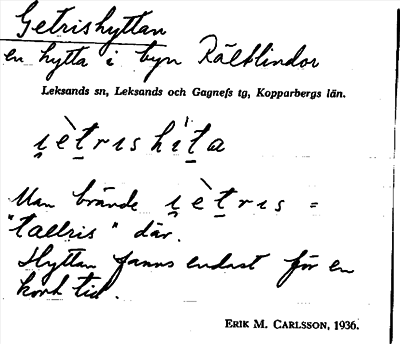 Getrishyttan
en hytta i byn Rältlindor
Leksands sn, Leksands och Gagnefs tg, Kopparbergs län.
i̯ètrɩshìta
Man brände i̯ètrɩs =
"tallris" där.
Hyttan fanns endast för en
kort tid.
ERIK M. CARLSSON, 1936.